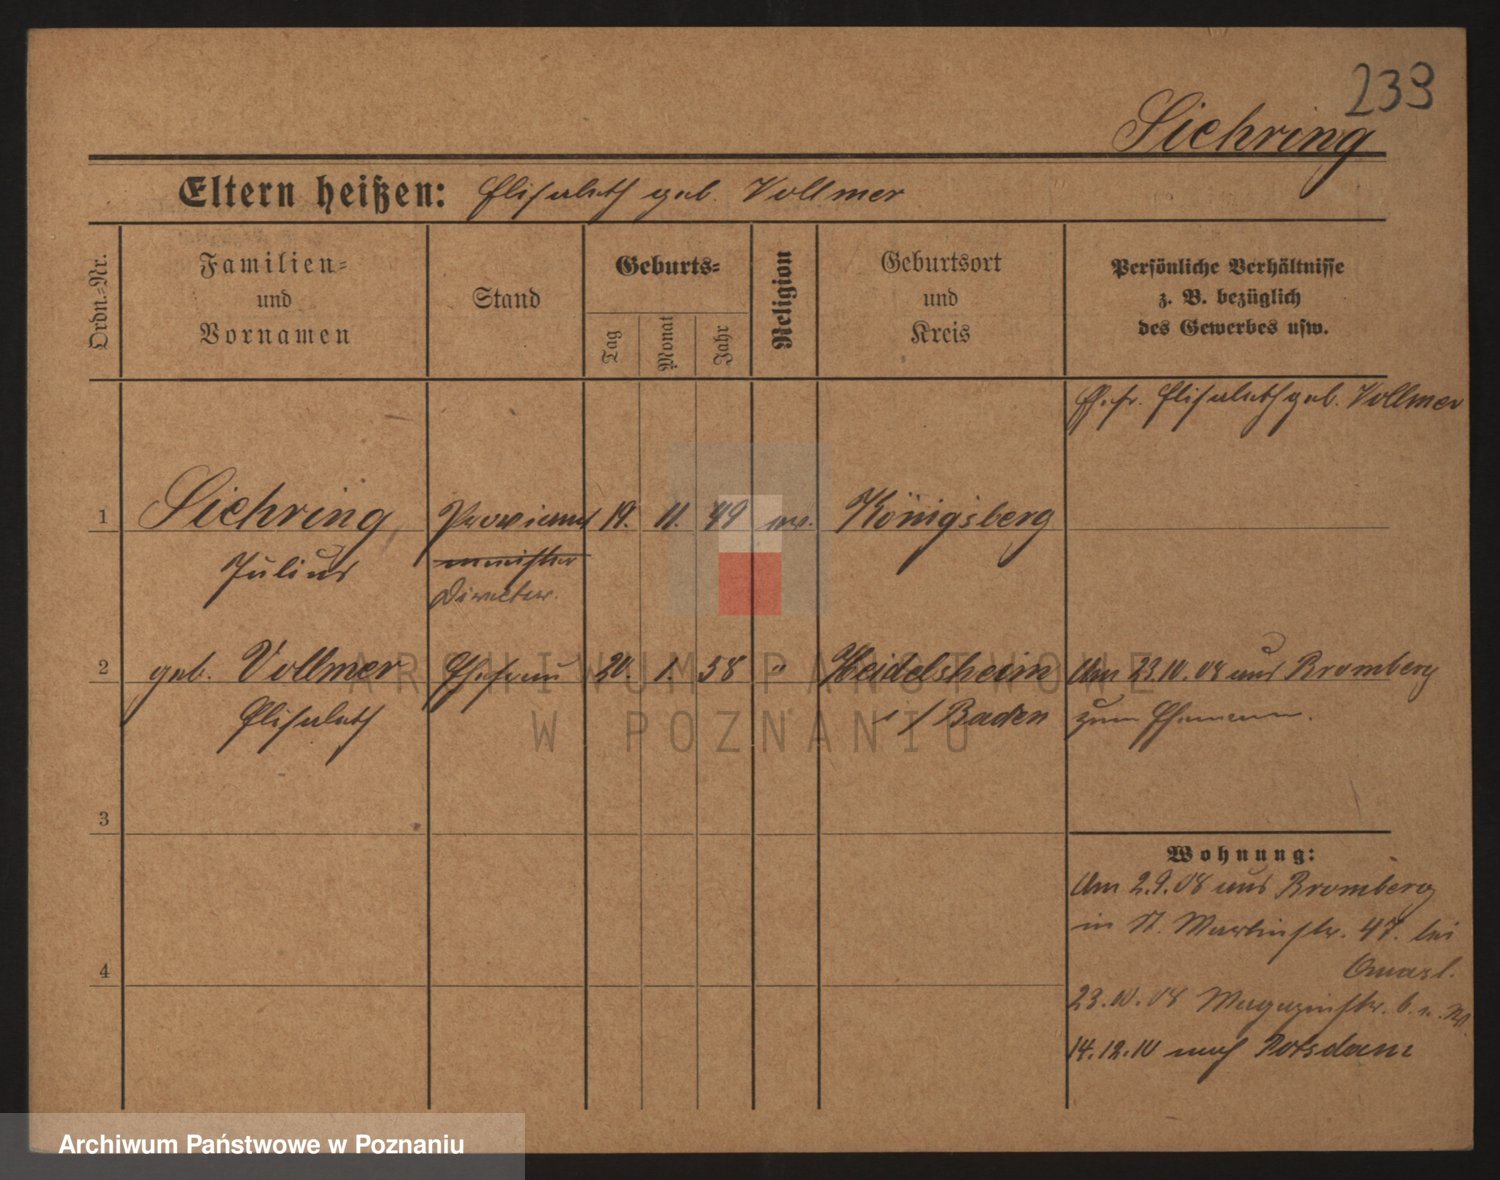 239
Siehring
Eltern heißen: Elisabeth geb. Vollmer
Ordn.-Nr.
Familien-
und
Vornamen
Stand
Geburts-
Tag
Monat
Jahr
Religion
Geburtsort
und
Kreis
Persönliche Verhältnisse
z. B. bezüglich
des Gewerbes usw.
Ehefr. Elisabeth geb. Vollmer
1 Siehring Proviant 19. 11. 49 ev. Königsberg
Julius
meister
Director.
2 geb. Vollmer Ehefrau 20. 1. 58 " Heidelsheim Am 23.10.08 aus Bromberg
Elisabeth i/Baden zum Ehemann.
3
Wohnung:
Am 2.9.08 aus Bromberg
in St. Martinstr. 47. bei
4
23.10.08 Magazinstr. 6
14.12.10 nach Potsdam
ARCHIWUM PAŃSTWOWE
W POZNANIU
Archiwum Państwowe w Poznaniu